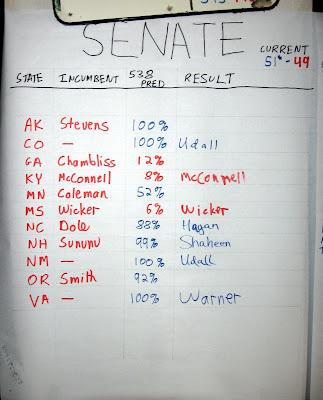 SENATE
CURRENT
51*-49
STATE INCUMBENT 538 PRED RESULT
AK Stevens 100%
CO — 100% Udall
GA Chambliss 12%
KY McConnell 8% McConnell
MN Coleman 52%
MS Wicker 6% Wicker
NC Dole 88% Hagan
NH Sununu 99% Shaheen
NM — 100% Udall
OR Smith 92%
VA — 100% Warner